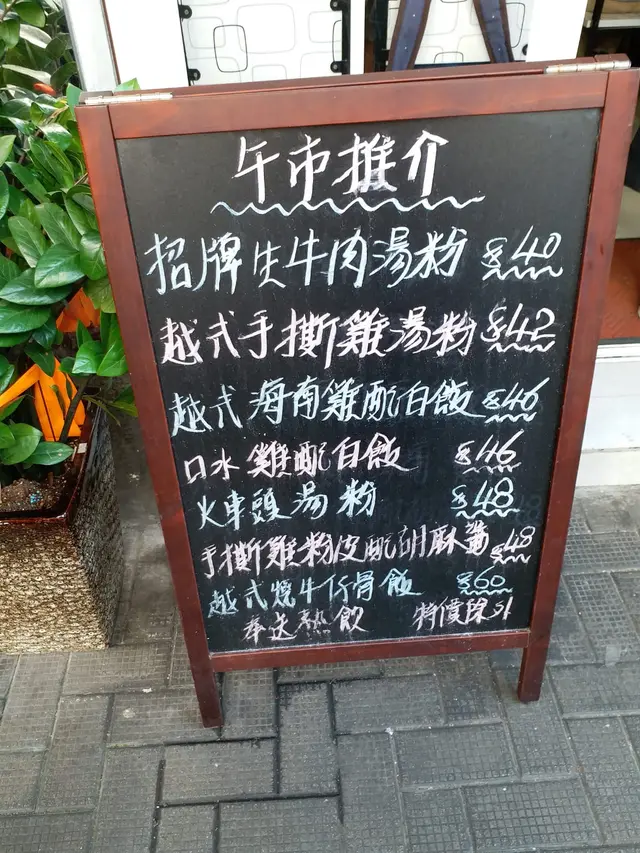 午市推介
招牌生牛肉湯粉 $40
越式手撕雞湯粉 $42
越式海南雞配白飯 $46
口水雞配白飯 $46
火車頭湯粉 $48
手撕雞粉皮配胡麻醬 $48
越式燒牛仔骨飯 $60
奉送熱飲 特價除外